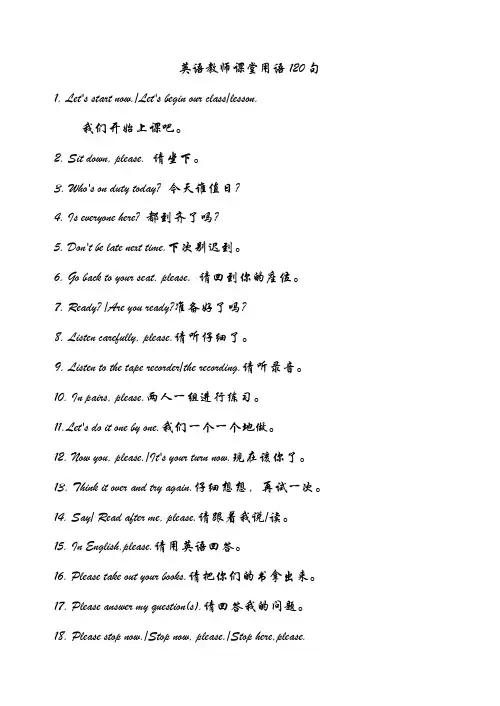 英语教师课堂用语120句
1. Let's start now.|Let's begin our class|lesson.
我们开始上课吧。
2. Sit down, please. 请坐下。
3. Who's on duty today? 今天谁值日?
4. Is everyone here? 都到齐了吗?
5. Don't be late next time.下次别迟到。
6. Go back to your seat, please. 请回到你的座位。
7. Ready? |Are you ready?准备好了吗?
8. Listen carefully, please.请听仔细了。
9. Listen to the tape recorder|the recording.请听录音。
10. In pairs, please.两人一组进行练习。
11.Let's do it one by one.我们一个一个地做。
12. Now you, please.|It's your turn now.现在该你了。
13. Think it over and try again.仔细想想，再试一次。
14. Say| Read after me, please.请跟着我说|读。
15. In English,please.请用英语回答。
16. Please take out your books.请把你们的书拿出来。
17. Please answer my question(s).请回答我的问题。
18. Please stop now.|Stop now, please.|Stop here,please.